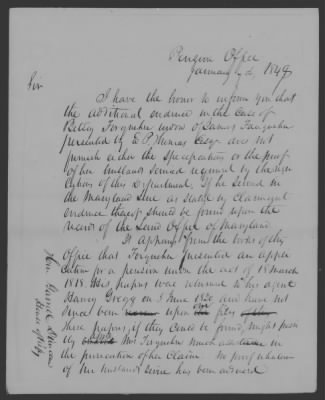 Pension Office
January 2d, 1849
Sir
I have the honor to inform you that
the additional evidence in the case of
Betsey Forqueher widow of James Forqueher
presented by E. P. Thomas Esqr does not
furnish either the specification or the proof
of her husband's service required by the regu-
lations of this Department. If he served in
the Maryland Line as stated by claimant
evidence thereof should be found upon the
records of the Land Office of Maryland.
It appears from the books of this
Office that Forqueher presented an appli-
cation for a pension under the act of 18 March
1818. His papers were returned to his agent
Harvey Gregg on 3 June 1820, and have not
since been upon our files
these papers, if they could be found, might possi
bly Mrs Forqueher much in
the prosecution of her claim. No proof whatever
of her husband's service has been adduced
Hon. Garnett Duncan
House of Rep.